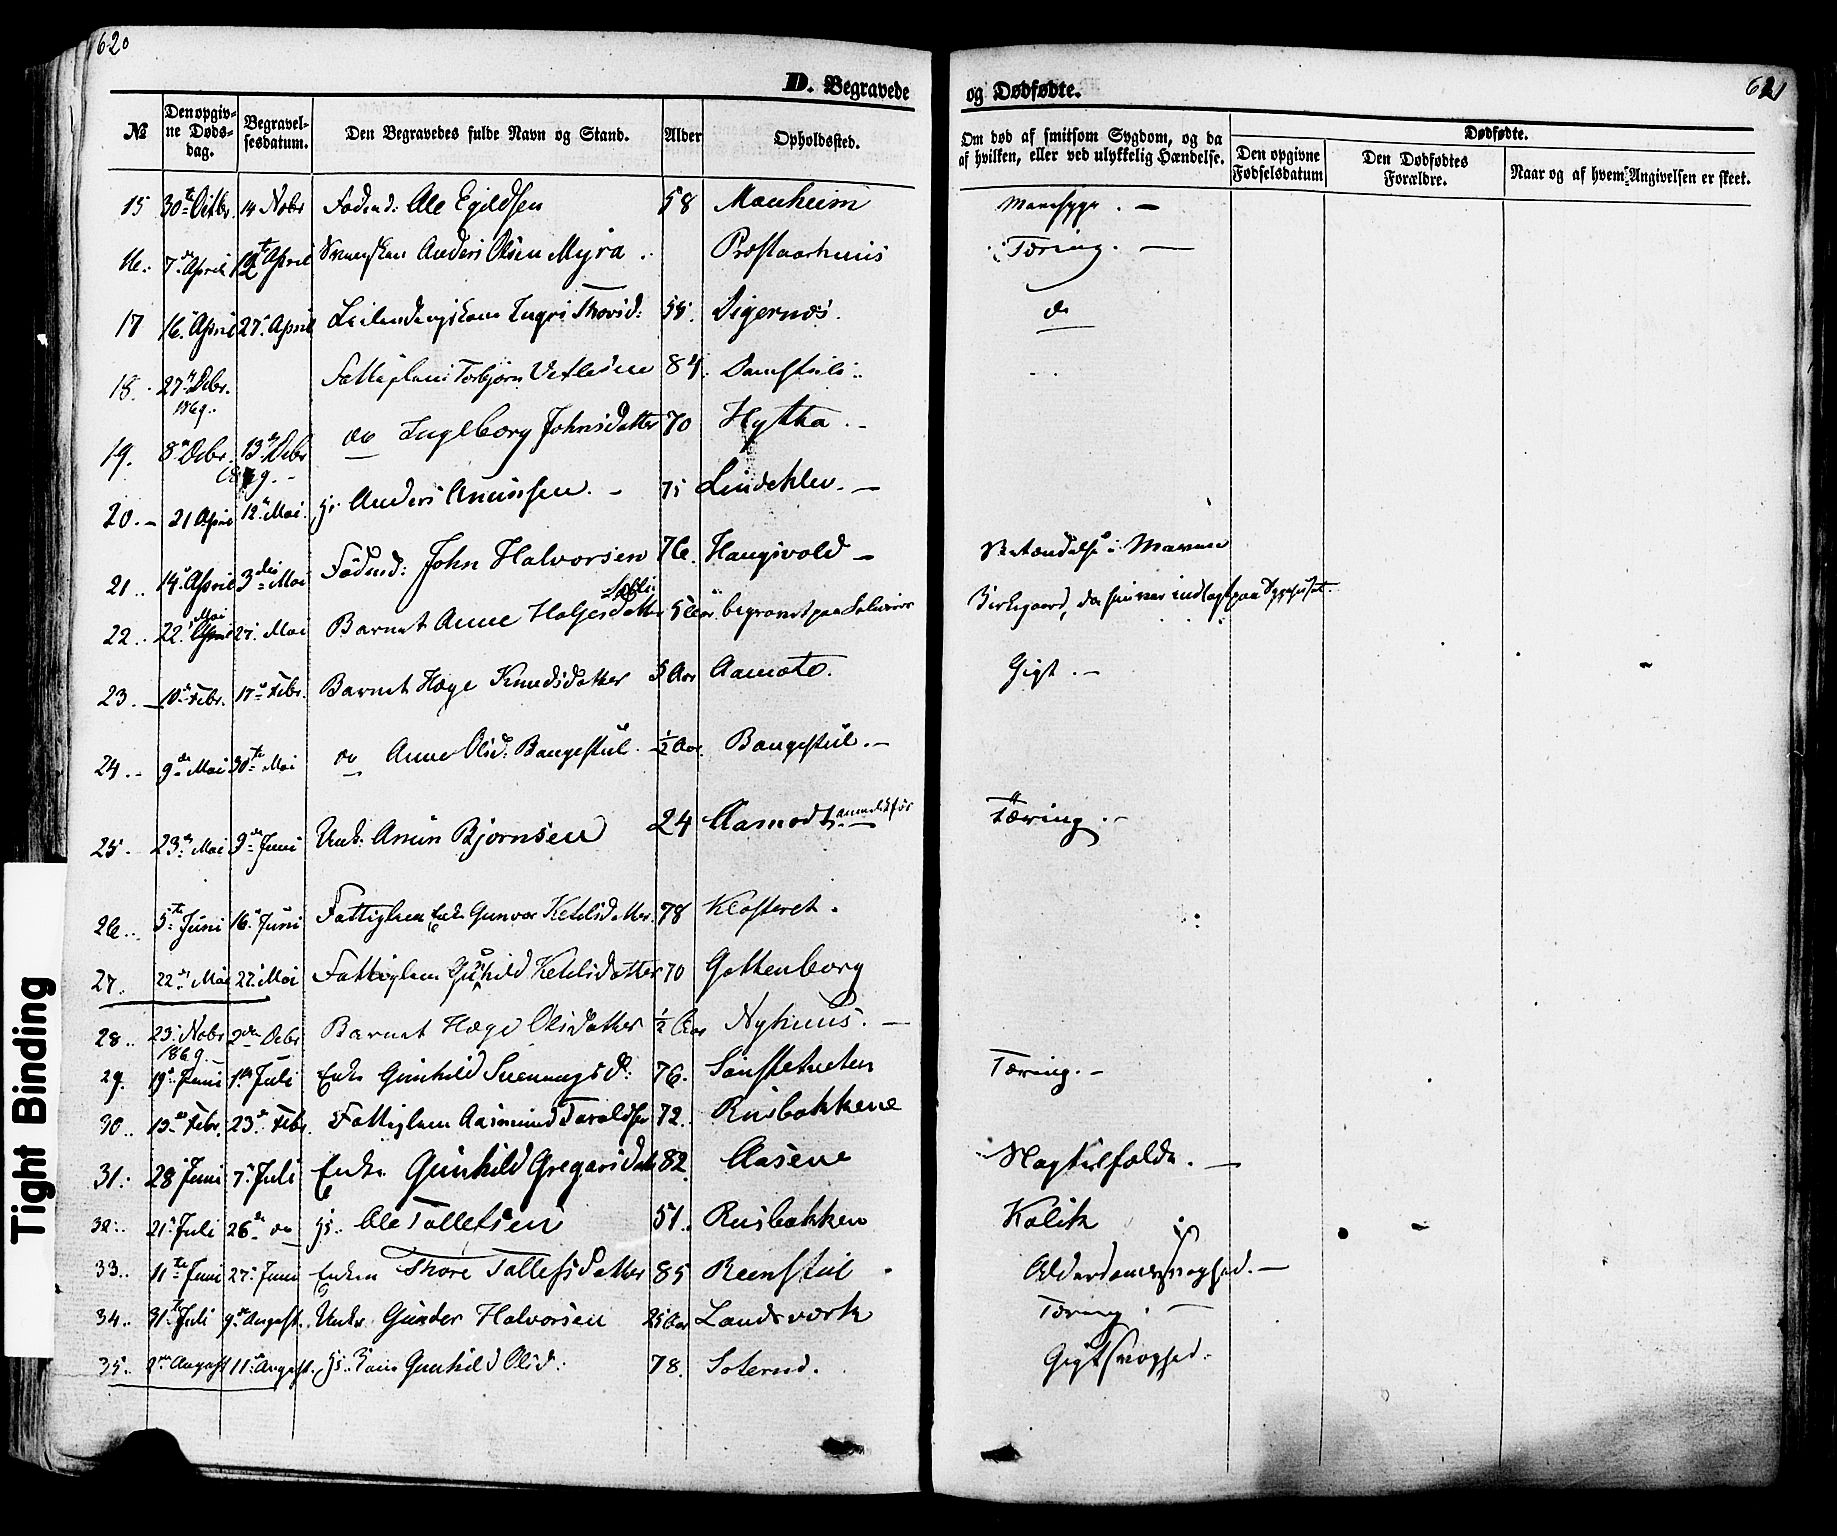 620
621
D. Begravede
og Dødfødte.
№
Den opgiv-
ne Døds-
dag.
Begravel-
sesdatum.
Den Begravedes fulde Navn og Stand.
Alder
Opholdssted.
Om død af smitsom Sygdom, og da
af hvilken, eller ved ulykkelig Hændelse.
Dødfødte.
Den opgivne
Fødselsdatum
Den Dødfødtes
Forældre.
Naar og af hvem Angivelsen er skeet.
15 30te Octbr. 14 Nobr Føderd: Ole Egildsen 58 Manheim Mavesyge. —
16. 7de April 12te April Anders Olsen Myra. Præstaarhuus Tæring. —
17 16. April 27. April Ingri Thovsd: 58. Digernæs. do
18. 27de Debr. 1869. Fattiglem Torbjørn Vetlesen 84. Damstul..
19. 8de Debr. 13de Debr 1869. — do Ingeborg Johnsdatter 70 Hytta. —
20. — 21 April 12te Mai. Gr Anders Amunsen. — 75 Lindeklev. —
21.. 14. April 3die Mai Føderd: John Halvorsen 76. Haugsvold — Betændelse i Maven
22.. 22. Mai 27. Mai Barnet Anne Holjesdatter 5 Aar. begravet paa
Kirkegaard, da hun var indlagt paa Sygehuset.
23. — 10de Febr. 17de Febr. Barnet Hæge Knudsdatter 5 Aar Aamote. Gigt. —
24.. 9de Mai 30te Mai do Anne Olsd: Baugestul. ½ Aar. Baugestul. —
25. 23de Mai 3de Juni Unk: Amun Bjørnsen 24 Aamodt Tæring. —
26.. 5te Juni 16. Juni Fattiglem Enke Gunvor Ketilsdatter. 78 Klosteret.
27. 22de Mai 27. Mai Fattiglem Gunhild Ketilsdatter 70 Gottenborg
28.. 23. Nobr 1869. — 2den Debr Barnet Hæge Olsdatter ½ Aar Nyhuus. —
29. 19de Juni 1ste Juli Enke Gunhild Svenungsd: 76. Tæring. —
30.. 15de Febr. 23de Febr. Fattiglem Aasmund Taraldsen 72. Rusbakkene
31. 28 Juni 7. Juli Enke Gunhild Gregarsdatter 82 Aasene Slagtilfælde. —
32.. 21. Juli 26de do Gr.. Ole Tallefsen 51. Rusbakken Kolik
33.. 11te Juni 27. Juni Enken Thore Tallefsdatter 85 Reenstul. Alderdomssvaghed. —
34.. 31te Juli 9de August. Unk. Gunder Halvorsen 25 Aar Landsværk Tæring. —
35.. 2den August 11. August. Gunhild Olsd: 78. Soterud. Gigtsvaghed.
Tight Binding